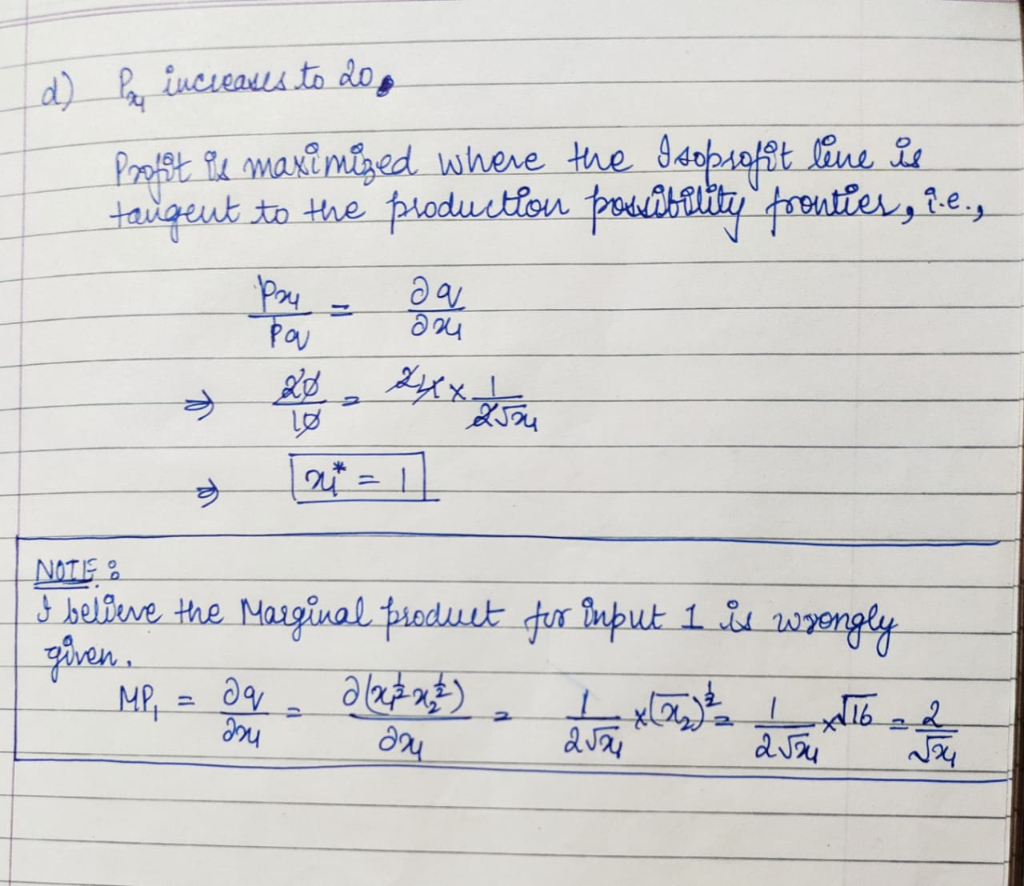 d) Px₁ increases to 20.
Profit is maximized where the Isoprofit line is
tangent to the production possibility frontier, i.e.,
Px₁/Pq = ∂q/∂x₁
⇒ 20/10 = 24 × 1/2√x₁
⇒ x₁* = 1
NOTE:
I believe the Marginal product for input 1 is wrongly
given.
MP₁ = ∂q/∂x₁ = ∂(x₁^½ x₂^½)/∂x₁ = 1/2√x₁ × (x̄₂)^½ = 1/2√x₁ × √16 = 2/√x₁